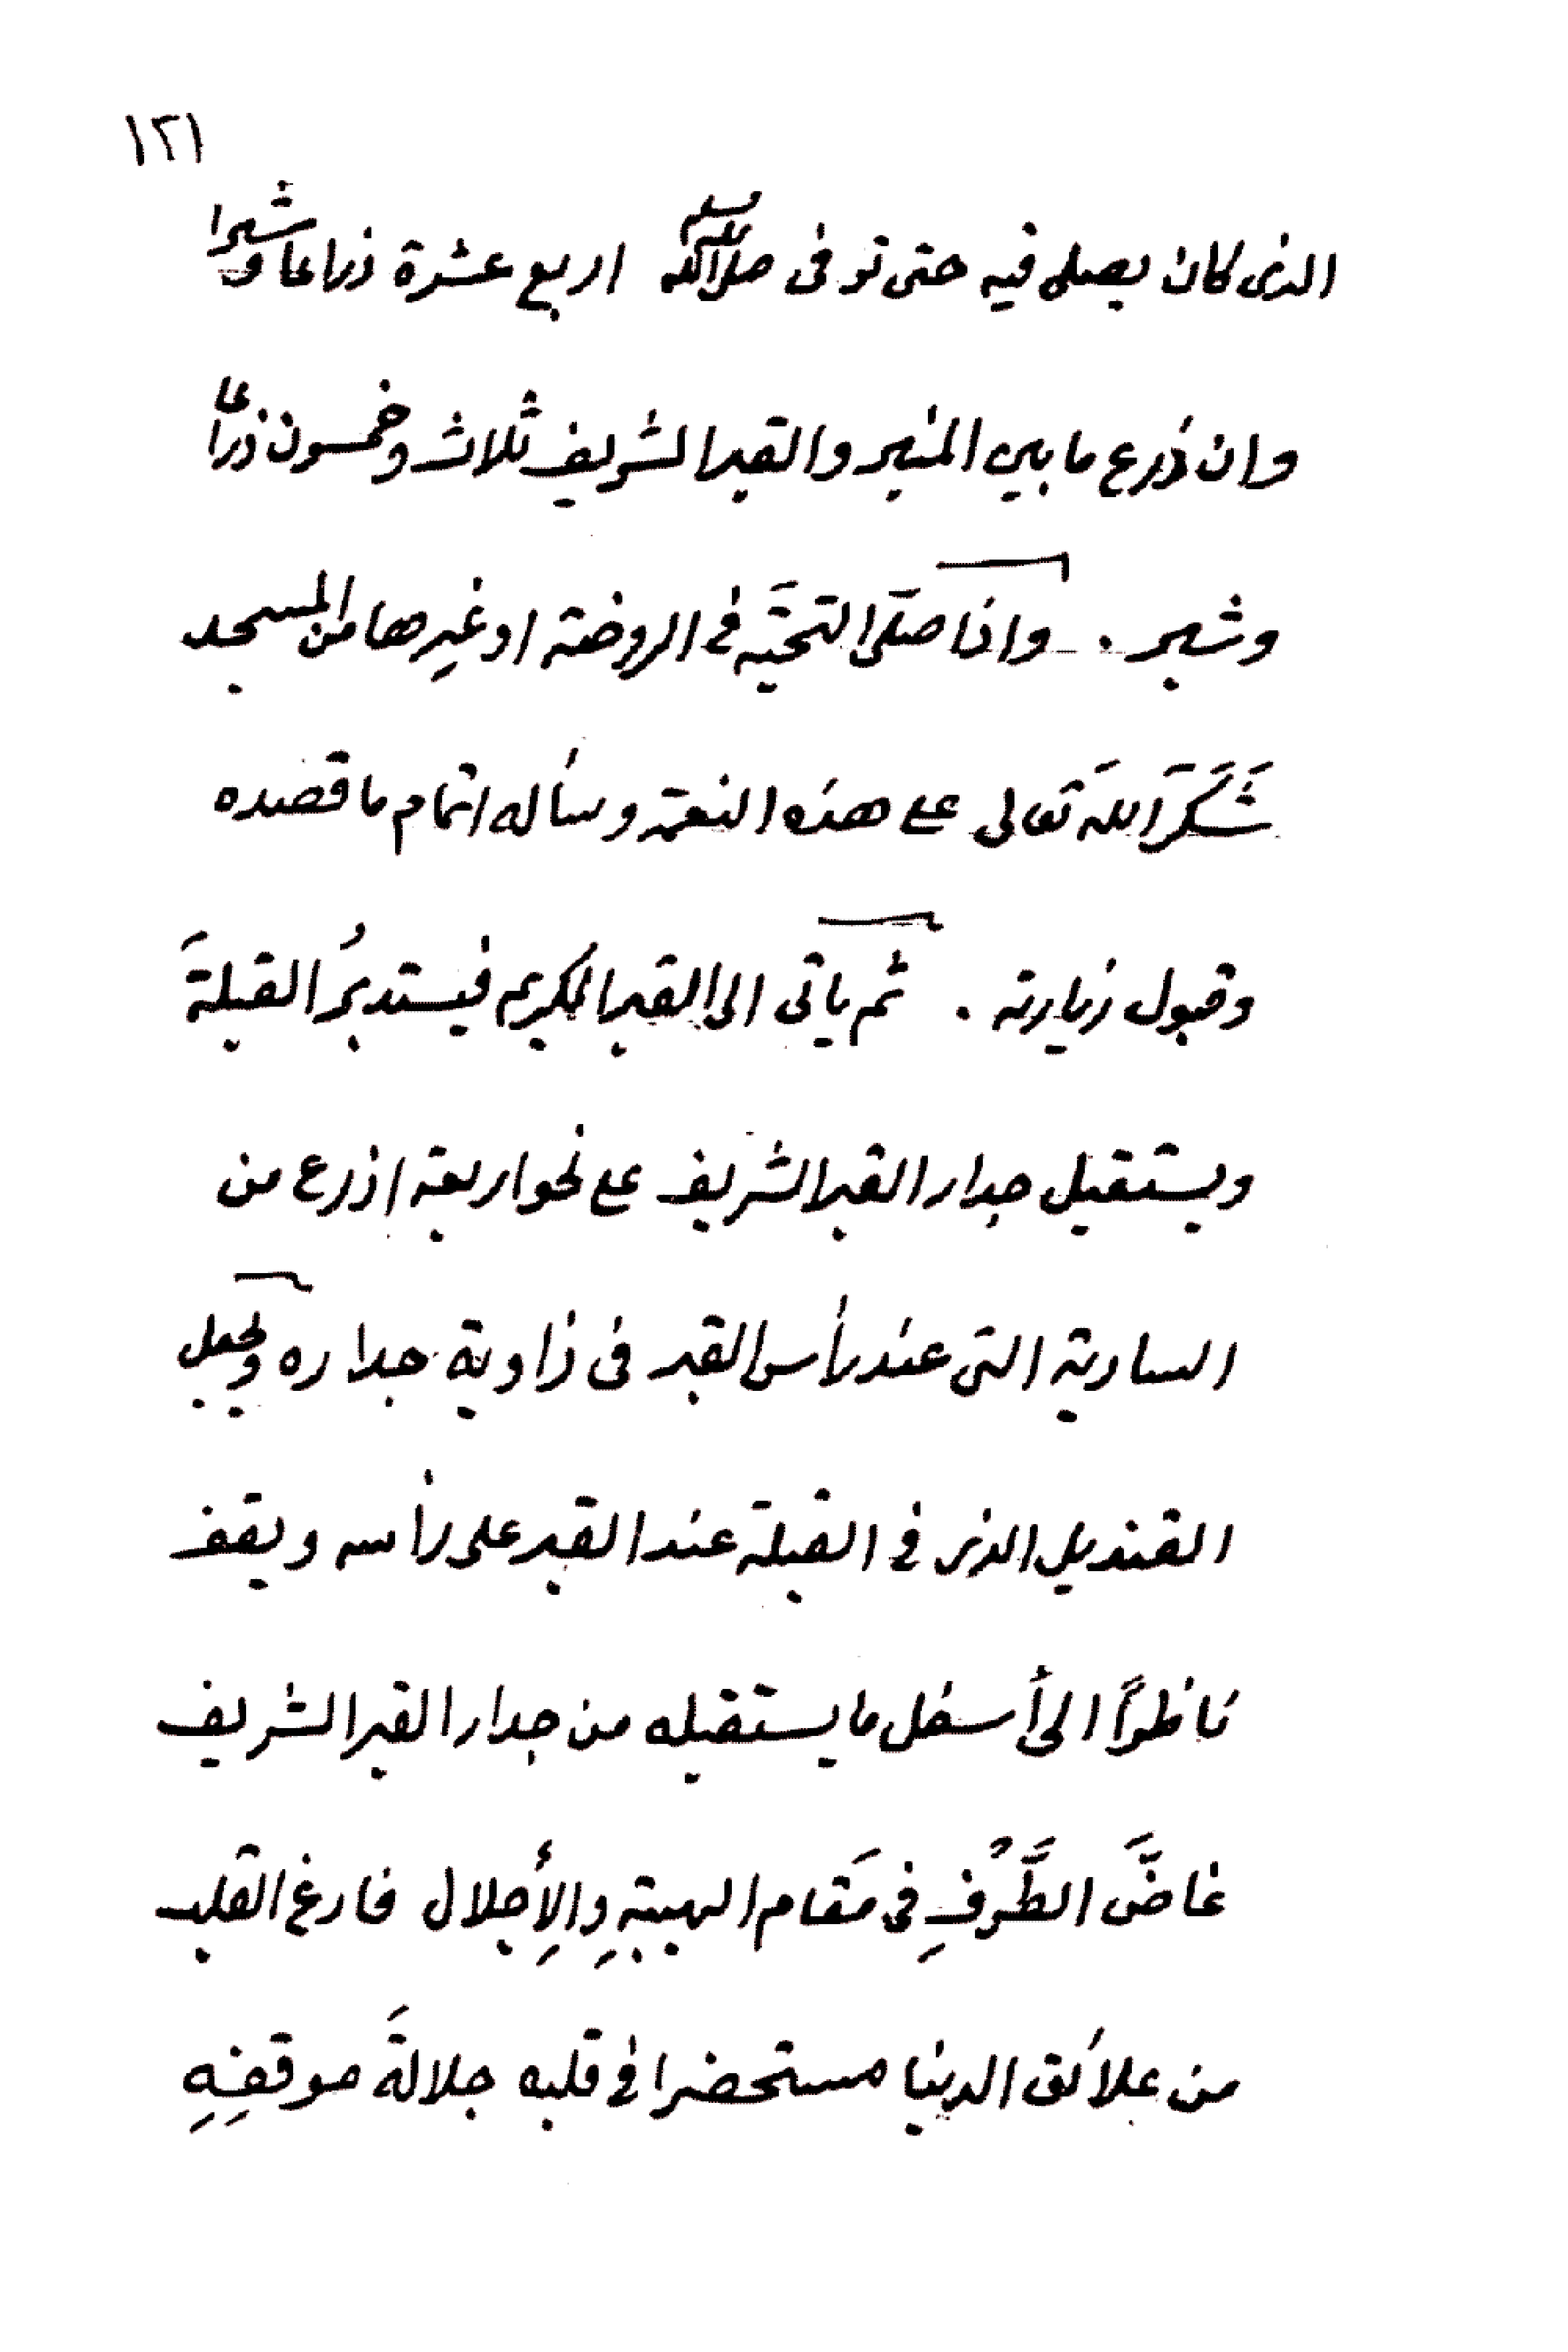 ١٢١
الذى كان يصلى فيه حتى توفى صلى الله عليه وسلم اربع عشرة ذراعا وشبرا
وان ذرع ما بين المنبر والقبر الشريف ثلاث وخمسون ذراعا
وشبر . واذا صلّى التحيّة فى الروضة او غيرها من المسجد
شَكَرَ اللهَ تعالى على هذه النعمة وسأله اتمام ما قصده
وقبول زيارته . ثم يأتى الى القبر الكريم فيستدبرُ القبلةَ
ويستقبل جدار القبر الشريف على نحو اربعة اذرع من
السارية التى عند رأس القبر فى زاوية جداره ويجعل
القنديل الذى فى القبلة عند القبر على رأسه ويقف
ناظراً الى أسفل ما يستقبله من جدار القبر الشريف
غاضَّ الطَّرْفِ فى مَقام الهيبةِ والإِجلال فارغ القلب
من علائق الدنيا مستحضرا فى قلبه جلالةَ موقفِهِ